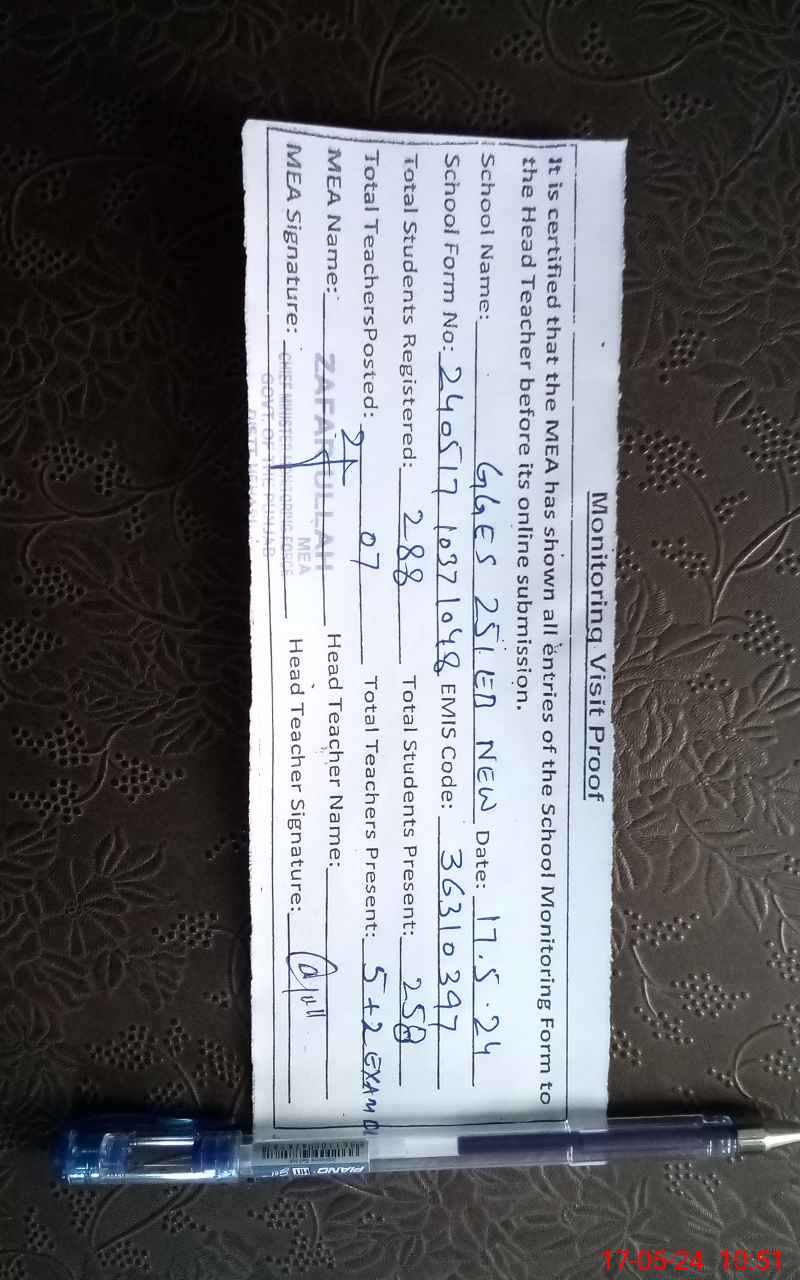 Monitoring Visit Proof
It is certified that the MEA has shown all entries of the School Monitoring Form to
the Head Teacher before its online submission.
School Name: GGES 251 EB NEW Date: 17.5.24
School Form No: 240517 10371048 EMIS Code: 36310397
Total Students Registered: 288 Total Students Present: 258
Total TeachersPosted: 07 Total Teachers Present: 5+2 EXAM
MEA Name: ZAFAR ULLAH Head Teacher Name:
MEA
MEA Signature: Head Teacher Signature:
CHIEF MINISTER MONITORING FORCE
GOVT. OF THE PUNJAB
DISTT. VEHARI
PIANO
17-05-24 10:51